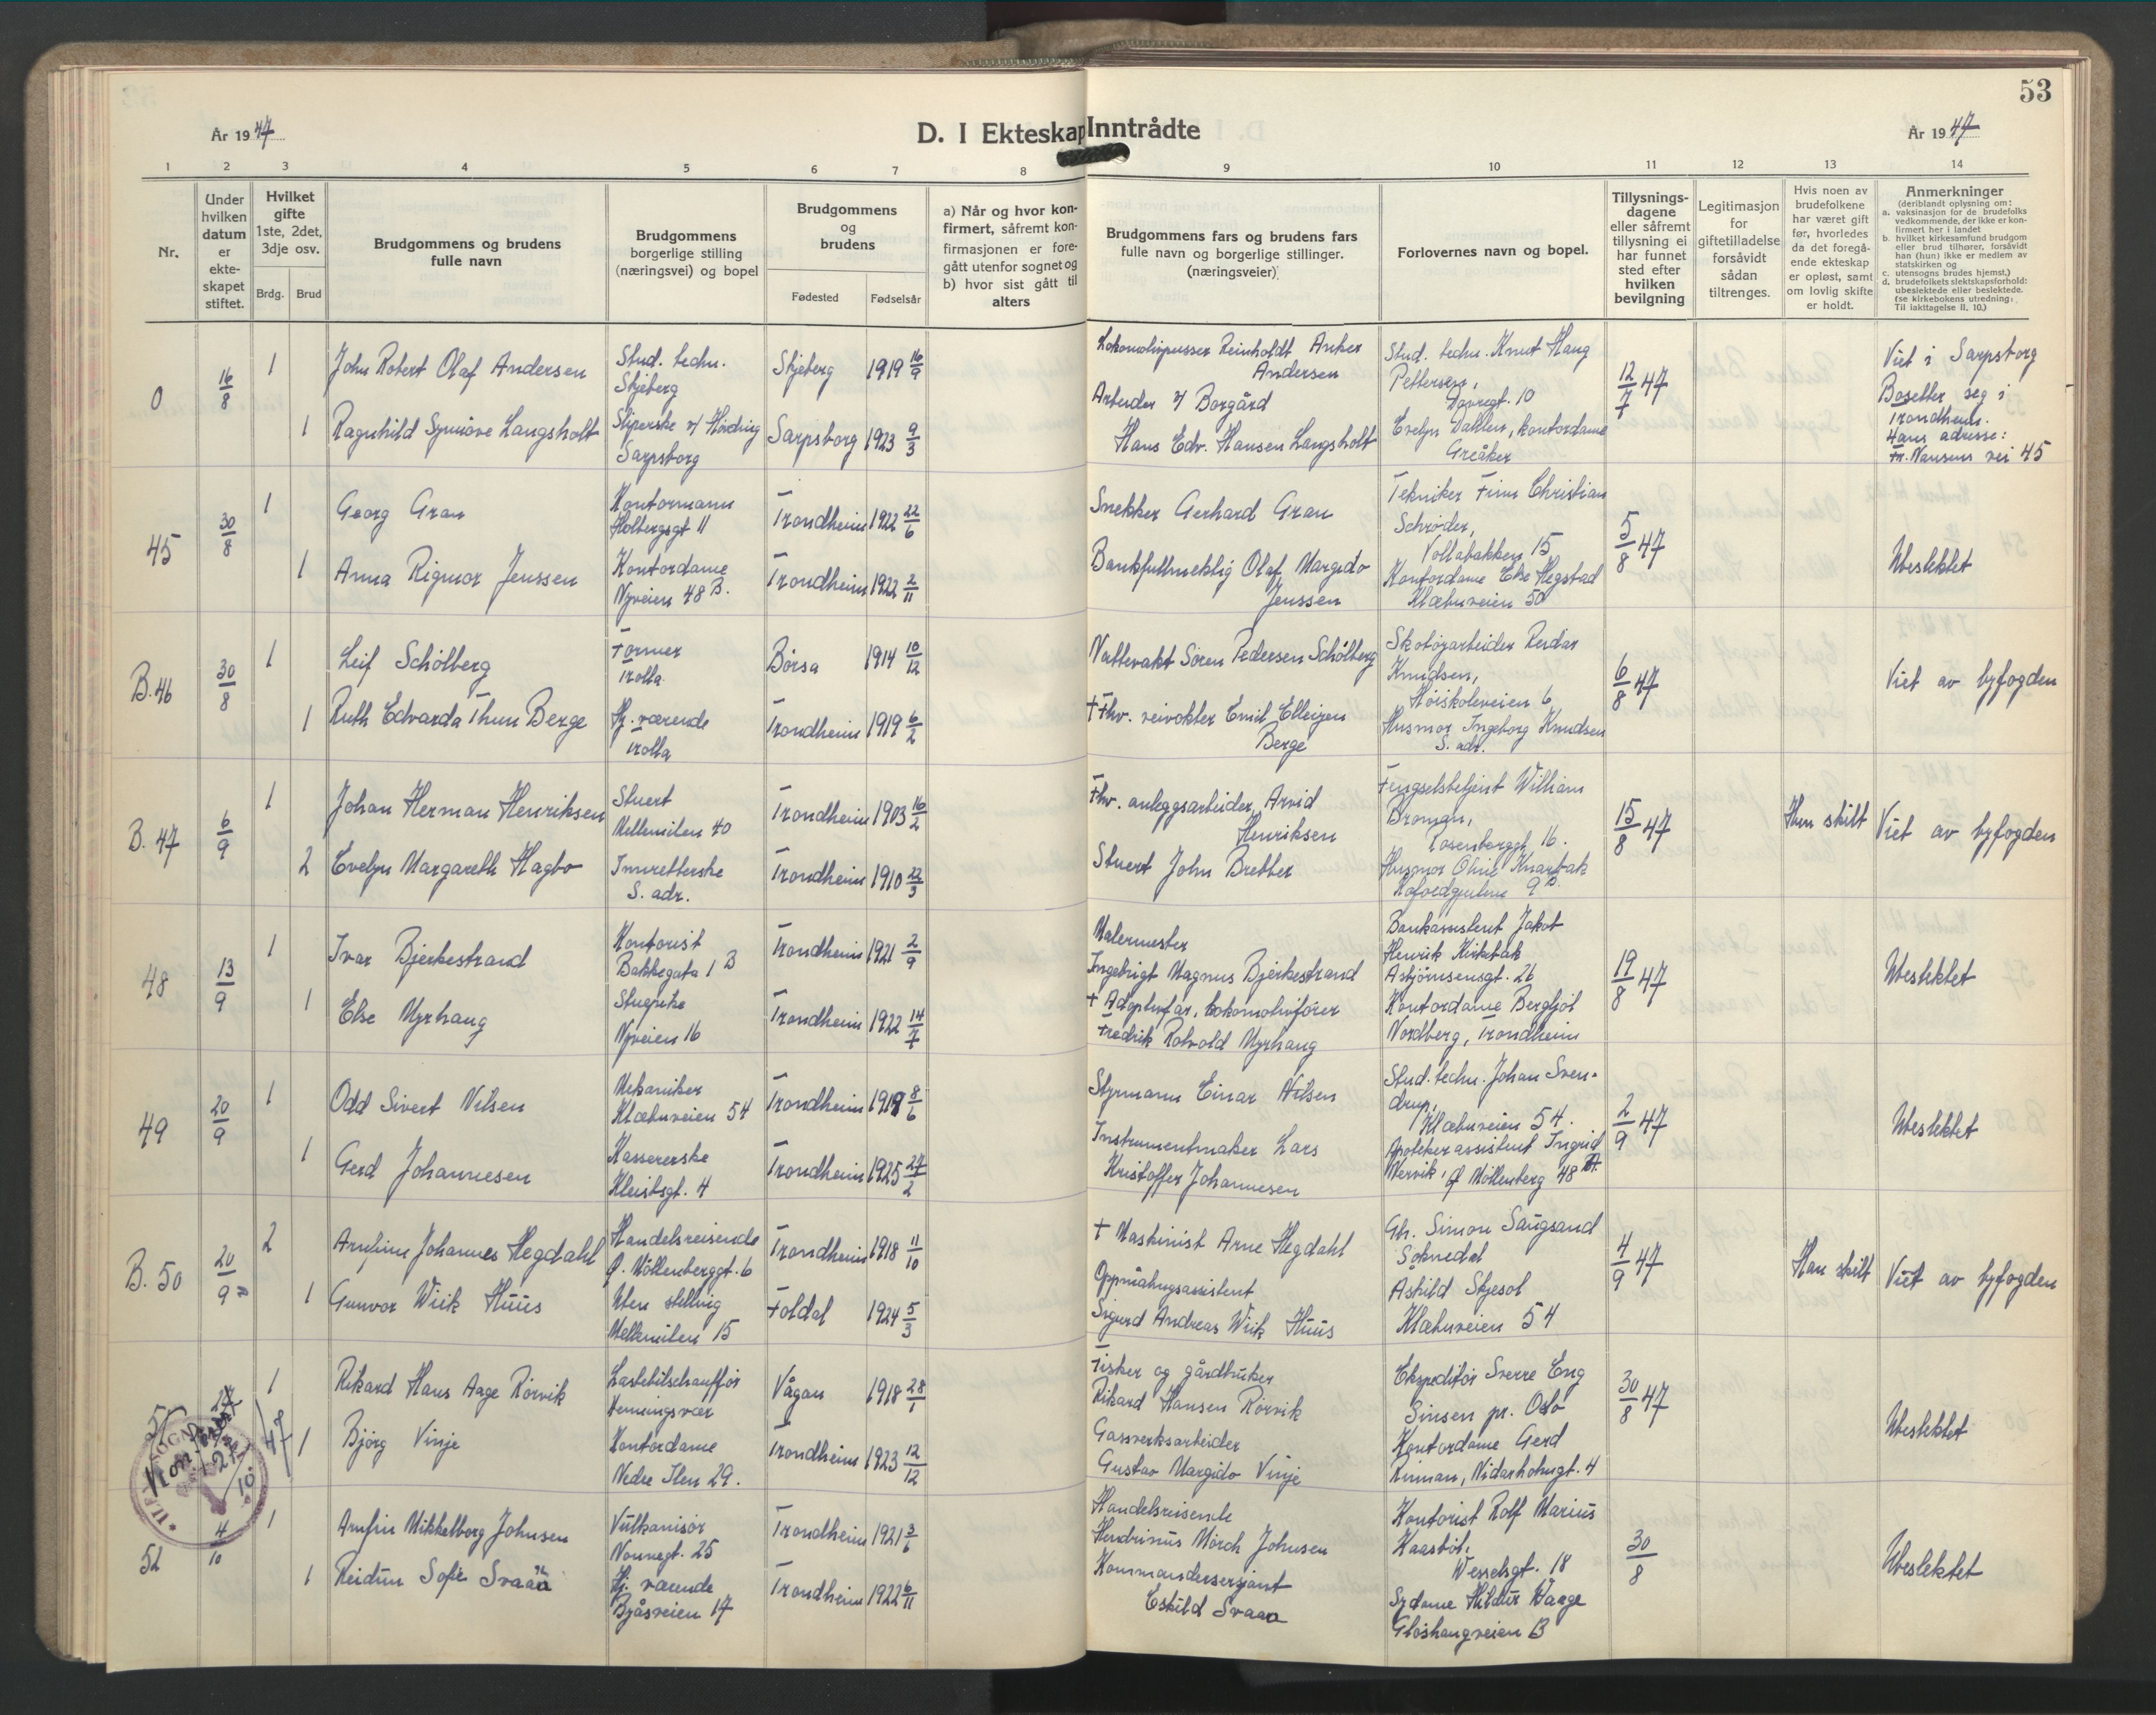 53
År 1947
D. I Ekteskap Inntrådte
År 1947
1 2 3 4 5 6 7 8 9 10 11 12 13 14
Nr.
Under hvilken datum er ekteskapet stiftet.
Hvilket gifte 1ste, 2det, 3dje osv.
Brdg. Brud
Brudgommens og brudens fulle navn
Brudgommens borgerlige stilling (næringsvei) og bopel
Brudgommens og brudens
Fødested Fødselsår
a) Når og hvor konfirmert, såfremt konfirmasjonen er foregått utenfor sognet og b) hvor sist gått til alters
Brudgommens fars og brudens fars fulle navn og borgerlige stillinger. (næringsveier)
Forlovernes navn og bopel.
Tillysningsdagene eller såfremt tillysning ei har funnet sted efter hvilken bevilgning
Legitimasjon for giftetilladelse forsåvidt sådan tiltrenges.
Hvis noen av brudefolkene har været gift før, hvorledes da det foregående ekteskap er opløst, samt om lovlig skifte er holdt.
Anmerkninger
(deriblandt oplysning om:
a. vaksinasjon for de brudefolks vedkommende, der ikke er konfirmert her i landet
b. hvilket kirkesamfund brudgom eller brud tilhører, forsåvidt han (hun) ikke er medlem av statskirken og
c. utensogns brudes hjemst.)
d. brudefolkets slektskapsforhold: ubeslektede eller beslektede.
(se kirkebokens utredning: Til iakttagelse II. 10.)
0 16/8 1 John Robert Olaf Andersen Stud. techn. Skjeberg Skjeberg 1919 16/9
Lokomotivpusser Reinholdt Anker Andersen
Stud. techn. Knut Haug Pettersen, Dovregt. 10
12/7 47
Viet i Sarpsborg Bosetter seg i Trondheim. Hans adresse: Fr. Nansens vei 45
1 Ragnhild Synnøve Langsholt Sarpsborg Sarpsborg 1923 9/3
Arbeider v/ Borgård Hans Edv. Hansen Langsholt
Evelyn Dahlen, kontordame Greåker
45 30/8 1 Georg Gran Kontormann Holbergsgt 11 Trondheim 1922 22/6
Snekker Gerhard Gran
Tekniker Finn Christian Schrøder, Vollabakken 15
5/8 47
Ubeslektet
1 Anna Rigmor Jenssen Kontordame Nyveien 48 B. Trondheim 1922 2/11
Bankfullmektig Olaf Margido Jenssen
Kontordame Else Hegstad Klæbuveien 50
B.46 30/8 1 Leif Schølberg Former Trolla Børsa 1914 10/12
Nattevakt Søren Pedersen Schølberg
Skotøyarbeider Reidar Knudsen, Høiskoleveien 6
6/8 47
Viet av byfogden
1 Ruth Edvarda Thun Berge Hj. værende Trolla Trondheim 1919 6/2
+ Fhv. veivokter Emil Elleigen Berge
Husmor Ingeborg Knudsen S. adr.
B. 47 6/9 1 Johan Herman Henriksen Stuert Mellemilen 40 Trondheim 1903 16/2
Fhv. anleggsarbeider Arvid Henriksen
Fengselsbetjent William Broman, Rosenborggt 16.
15/8 47
Hun skilt
Viet av byfogden
2 Evelyn Margareth Hagbo Innretterske S. adr. Trondheim 1910 22/3
Stuert John Bretter
Husmor Oline
48 13/9 1 Ivar Bjerkestrand Kontorist Bakkegata 1 B Trondheim 1921 2/9
Malermester Ingebrigt Magnus Bjerkestrand
Bankassistent Jakob Henrik Kirkbak Asbjørnsensgt. 26
19/8 47
Ubeslektet
1 Else Myrhaug Nyveien 16 Trondheim 1922 14/7
+ Adoptivfar, Lokomotivfører Fredrik Rolvold Myrhaug
Kontordame Bergljot Nordberg, Trondheim
49 20/9 1 Odd Sivert Nilsen Mekaniker Klæbuveien 54 Trondheim 1919 8/6
Styrmann Einar Nilsen
Stud. techn. Johan Svendrup, Klæbuveien 54.
2/9 47
Ubeslektet
1 Gerd Johannesen Kassererske Kleistsgt. 4 Trondheim 1925 27/2
Instrumentmaker Lars Kristoffer Johannesen
Apotekerassistent Ingrid Mervik, Ø Møllenberg 48 A.
B. 50 20/9 2 Arnfinn Johannes Hegdahl Handelsreisende Ø. Møllenberggt. 6 Trondheim 1918 11/10
+ Maskinist Arne Hegdahl
Gh. Simon Saugsand Soknedal
4/9 47
Han skilt
Viet av byfogden
1 Gunvor Wiik Huus Uten stilling Mellemilen 15 Foldal 1924 5/3
Oppmålingsassistent Sigurd Andreas Wiik Huus
Askild Skjesol Klæbuveien 54
51 27 1 Rikard Hans Aage Rørvik Lastebilschauffør Henningsvær Vågan 1918 28/1
Fisker og gårdbruker Rikard Hansen Rørvik
Ekspeditør Sverre Eng Sinsen pr. Oslo
30/8 47
Ubeslektet
1 Bjørg Vinje Kontordame Nedre Ilen 29. Trondheim 1923 12/12
Gassverksarbeider Gustav Margido Vinje
Kontordame Gerd Rinnan, Nidarholmgt. 4
52 4/10 1 Arnfin Mikkelborg Johnsen Vulkanisør Nonnegt. 25 Trondheim 1921 3/6
Handelsreisende Hendrinus Mørch Johnsen
Kontorist Rolf Marius Kaasbøl, Wesselsgt. 18
30/8
Ubeslektet
1 Reidun Sofie Svaan Hj. værende Byåsveien 17 Trondheim 1922 6/11
Kommandersersjant Eskild Svaan
Sydame Hildur Waage Gløshaugveien B